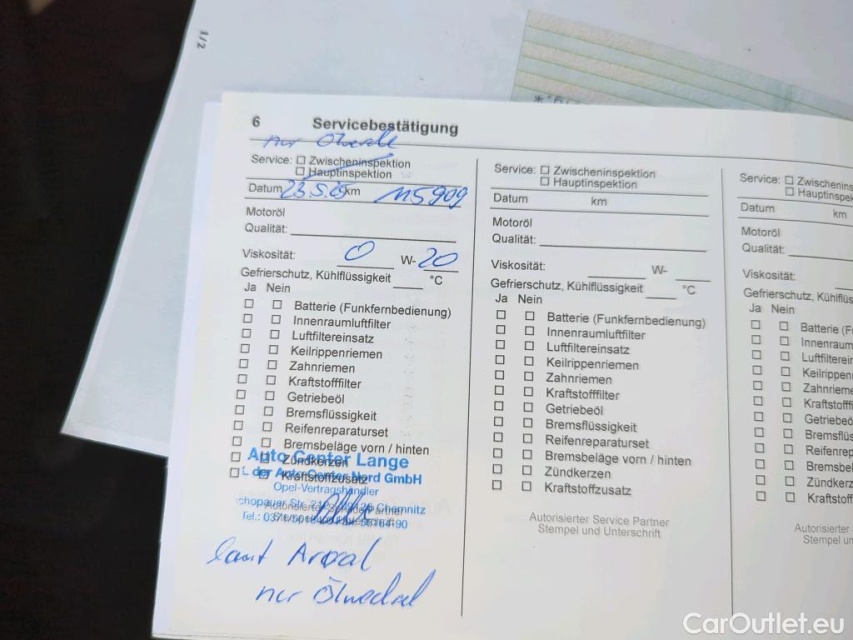 1/2
6 Servicebestätigung
nur Ölwechsel
Service: Zwischeninspektion
Hauptinspektion
Datum 23.5. km 115909
Motoröl
Qualität:
Viskosität: 0 W- 20
Gefrierschutz, Kühlflüssigkeit °C
Ja Nein
Batterie (Funkfernbedienung)
Innenraumluftfilter
Luftfiltereinsatz
Keilrippenriemen
Zahnriemen
Kraftstofffilter
Getriebeöl
Bremsflüssigkeit
Reifenreparaturset
Bremsbeläge vorn / hinten
Zündkerzen
Kraftstoffzusatz
Auto Center Lange
der Auto Center Nord GmbH
Opel-Vertragshändler
Chemnitz
Tel.:
laut
nur Ölwechsel
Service: Zwischeninspektion
Hauptinspektion
Datum km
Motoröl
Qualität:
Viskosität: W-
Gefrierschutz, Kühlflüssigkeit °C
Ja Nein
Batterie (Funkfernbedienung)
Innenraumluftfilter
Luftfiltereinsatz
Keilrippenriemen
Zahnriemen
Kraftstofffilter
Getriebeöl
Bremsflüssigkeit
Reifenreparaturset
Bremsbeläge vorn / hinten
Zündkerzen
Kraftstoffzusatz
Autorisierter Service Partner
Stempel und Unterschrift
Service: Zwischenins
Hauptinspek
Datum km
Motoröl
Qualität:
Viskosität:
Gefrierschutz, Kühlflüs
Ja Nein
Batterie (F
Innenraum
Luftfilterein
Keilrippen
Zahnrieme
Kraftstofff
Getriebeö
Bremsflüs
Reifenrep
Bremsbel
Zündkerz
Kraftstoff
Autorisierter
Stempel un
CarOutlet.eu